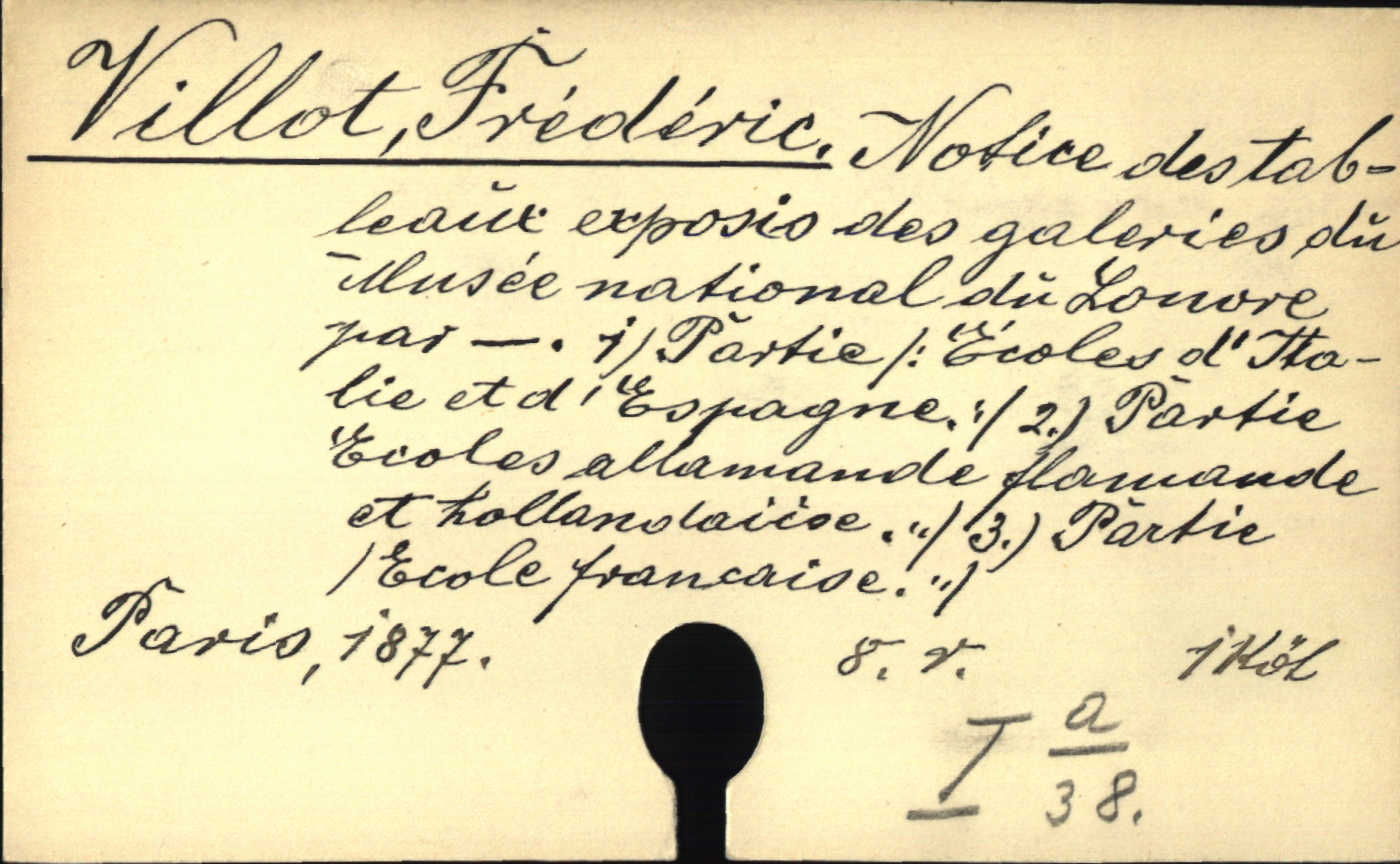 Villot, Frédéric. Notice des tab-
leaŭx exposis des galeries dŭ
Musée national dŭ Louvre
par —. 1) Partie /: Écoles d'Ita-
lie et d'Espagne. :/ 2.) Partie
Ecoles allamande flamande
et hollandaiise. :/ 3.) Partie
/ Ecole francaise. :/
Paris, 1877. 8. r. 1 Köt
I a
38.